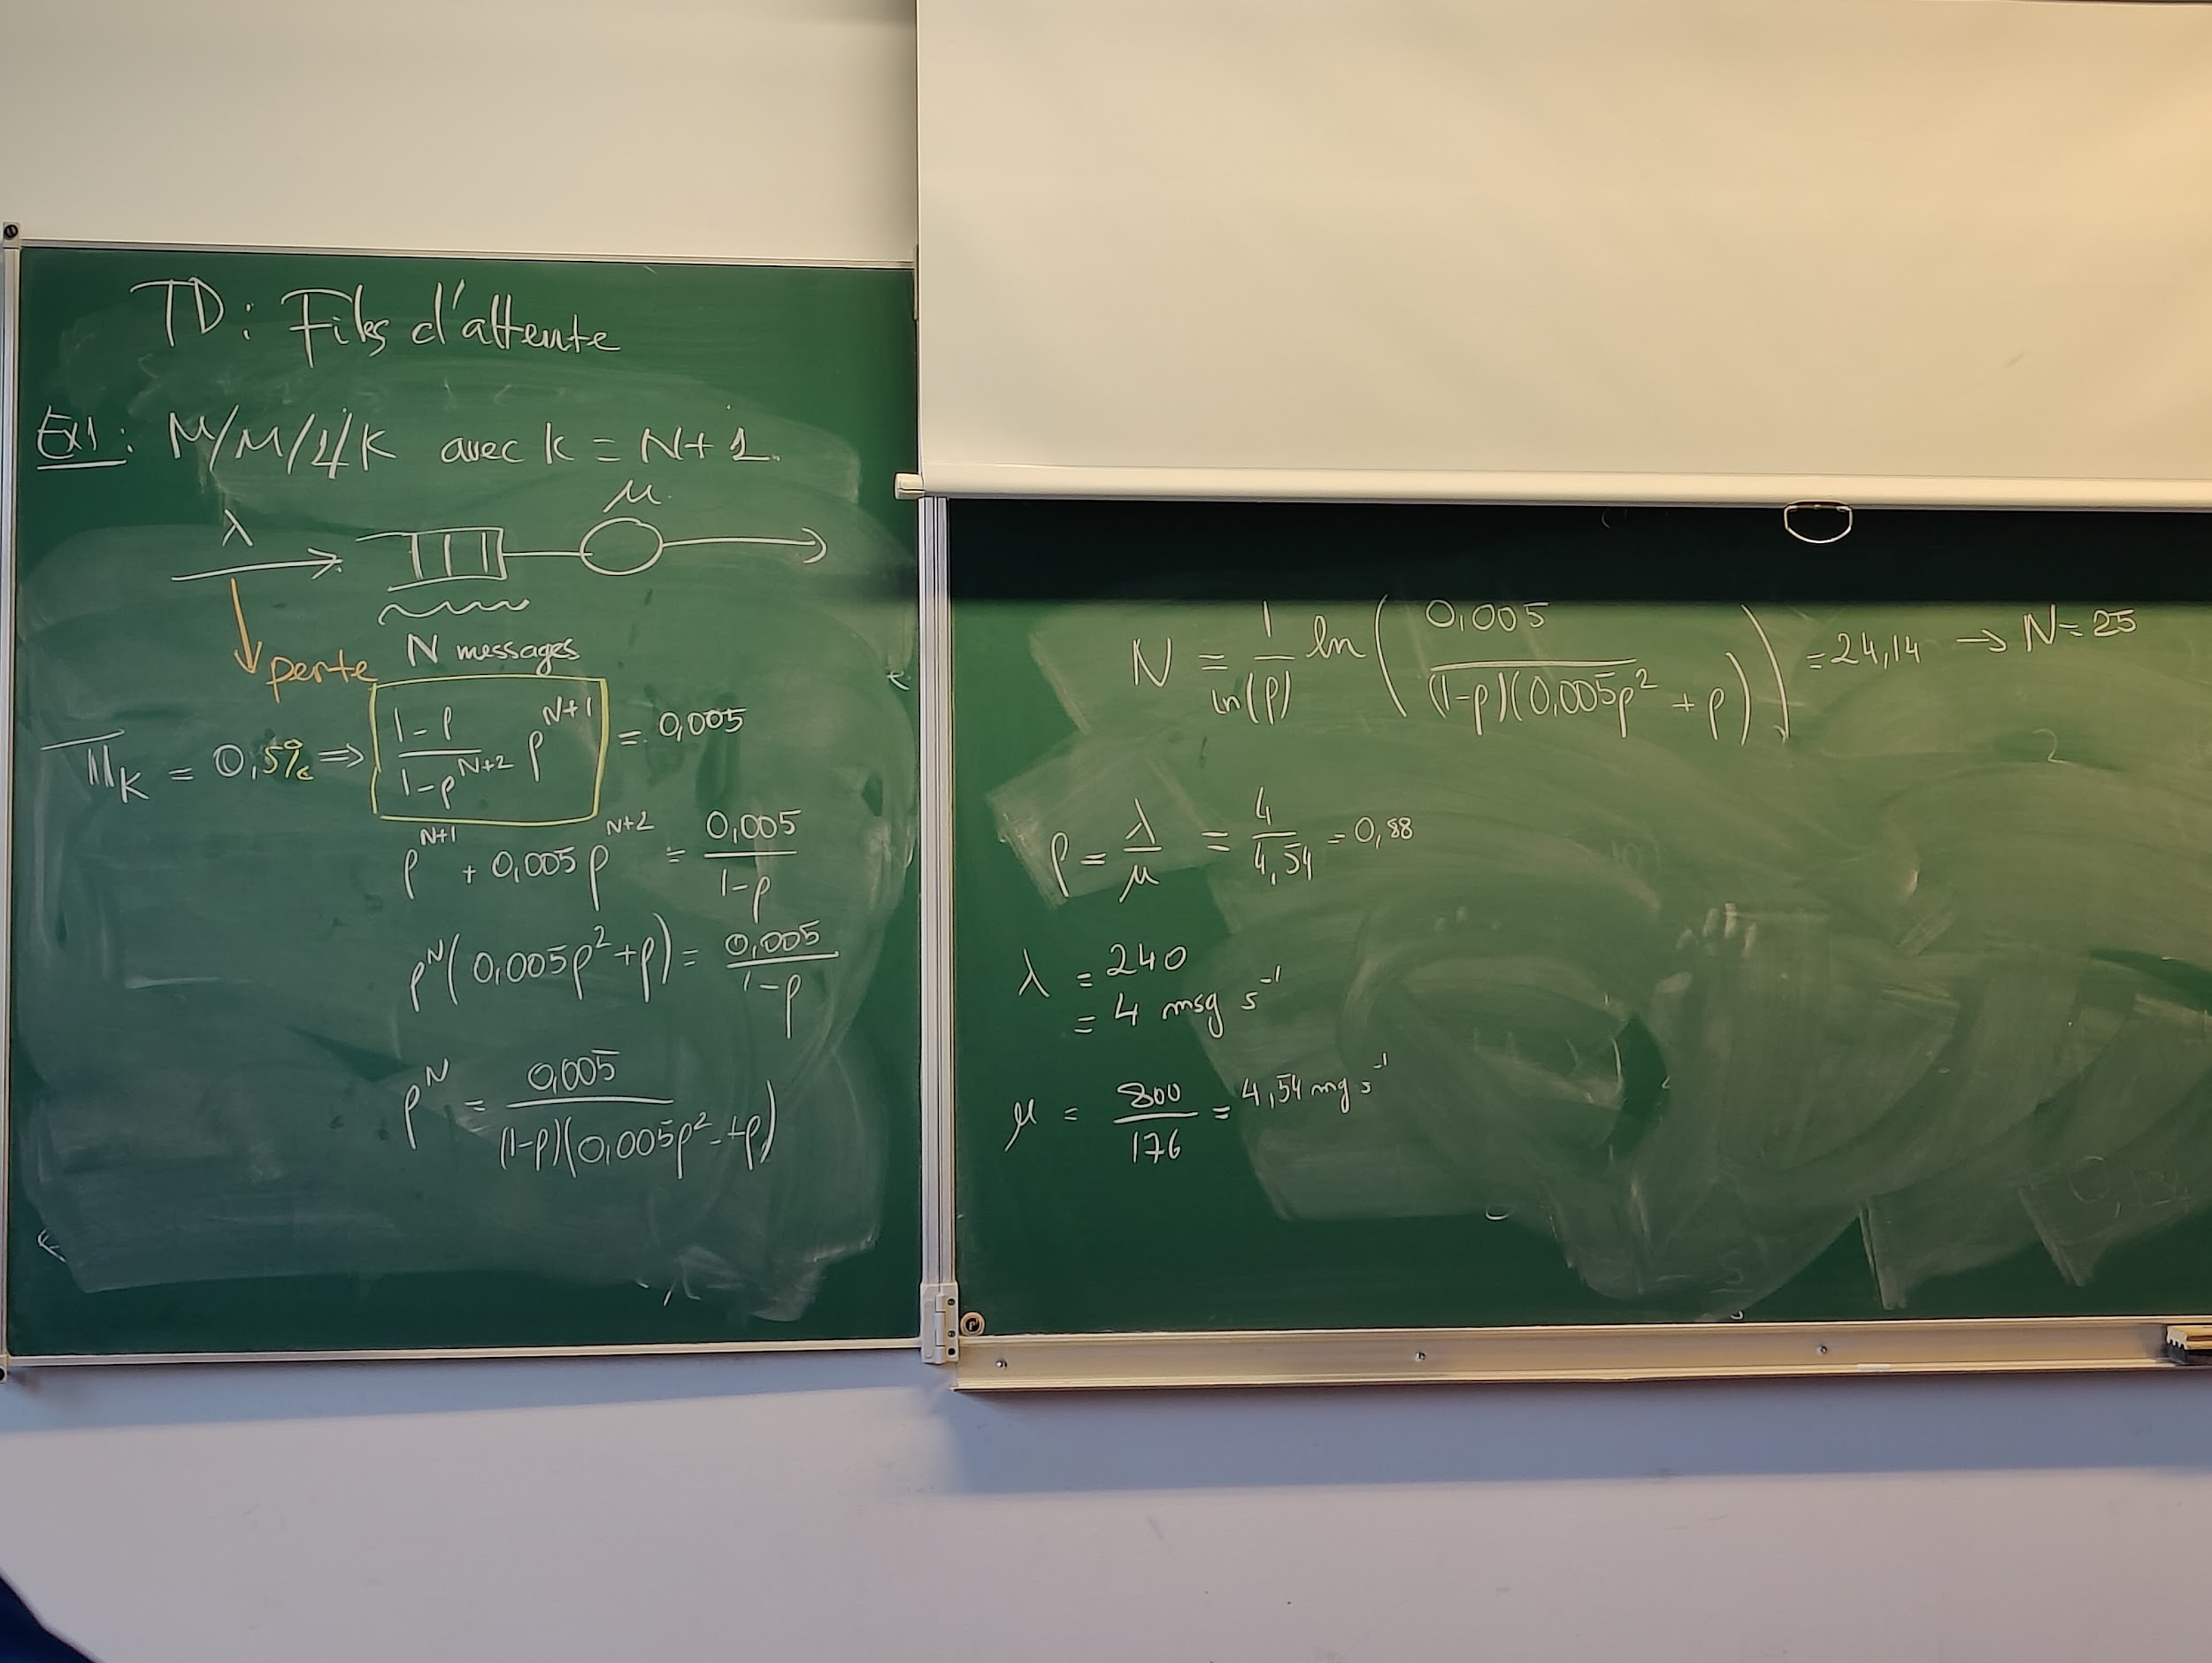 TD: Files d'attente
Ex1: M/M/1/K avec k = N+1.
λ
μ
perte
N messages
Π_K = 0,5% ⇒ (1-ρ)/(1-ρ^(N+2)) ρ^(N+1) = 0,005
ρ^(N+1) + 0,005ρ^(N+2) = 0,005/(1-ρ)
ρ^N(0,005ρ²+ρ) = 0,005/(1-ρ)
ρ^N = 0,005/((1-ρ)(0,005ρ²+ρ))
N = 1/ln(ρ) ln(0,005/((1-ρ)(0,005ρ²+ρ))) = 24,14 → N=25
ρ = λ/μ = 4/4,54 = 0,88
λ = 240
= 4 msg s⁻¹
μ = 800/176 = 4,54 mg s⁻¹